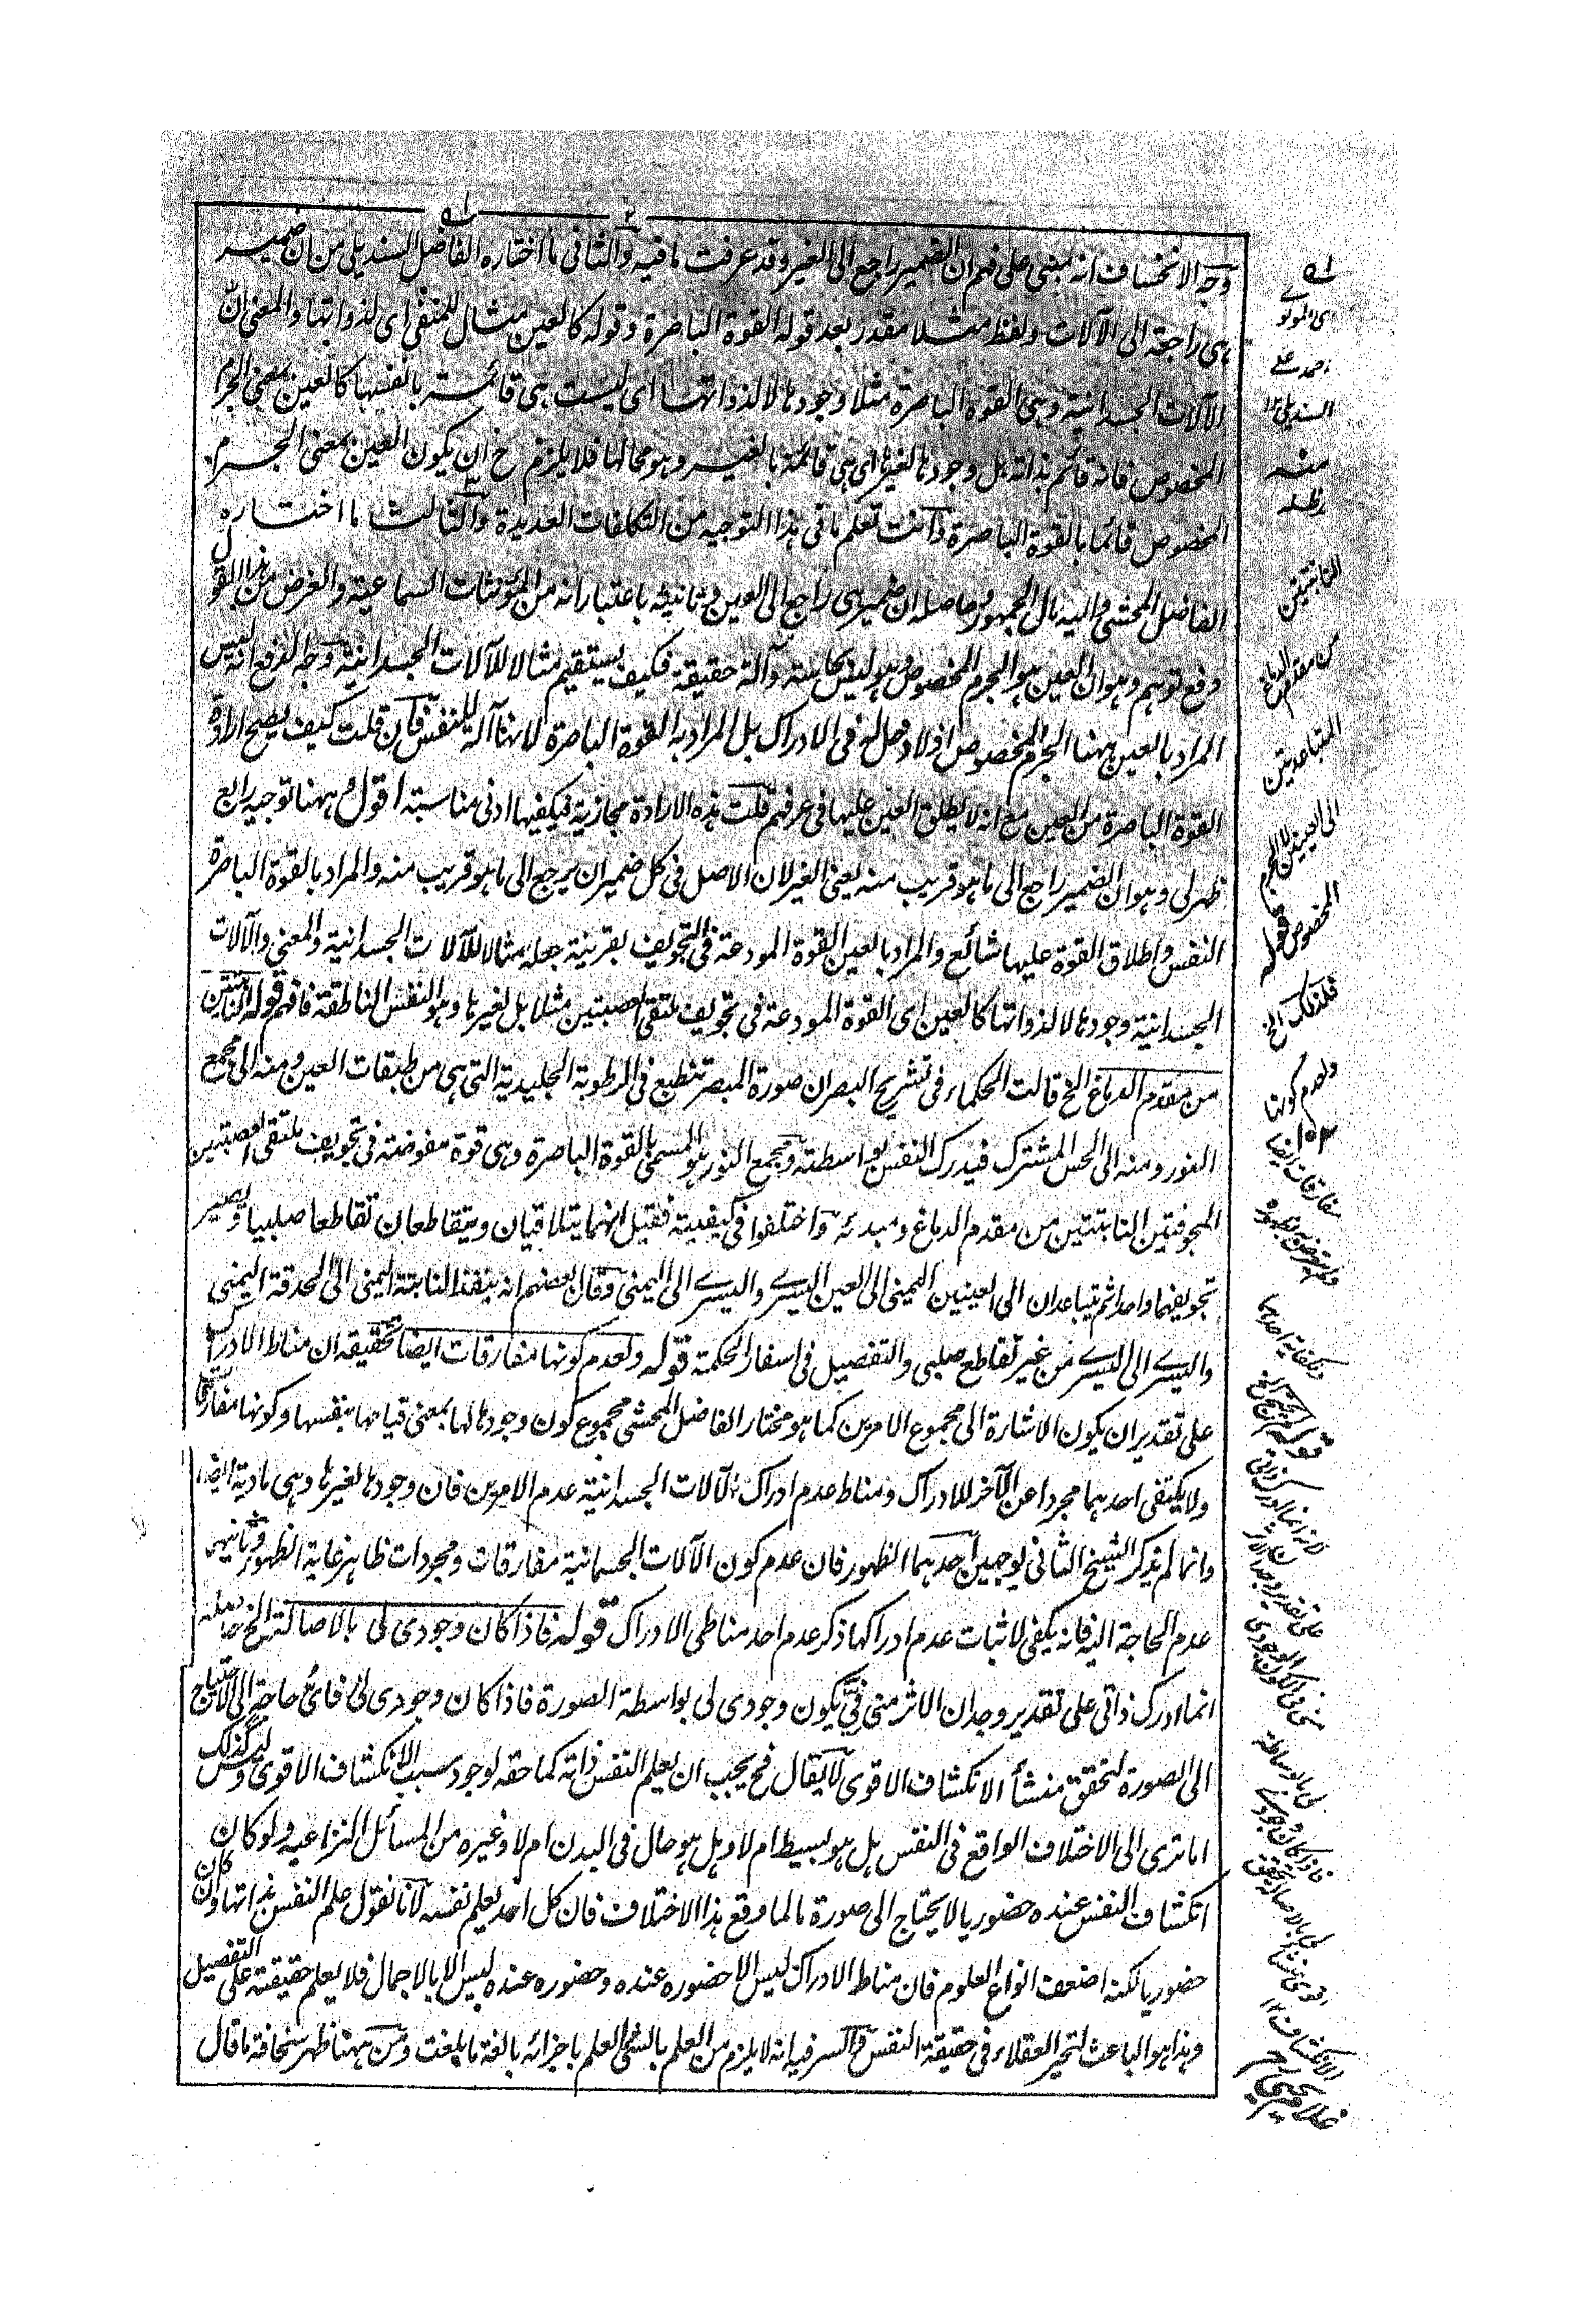 وجه الانخساف انه مبنى على فهم ان الضمير راجع الى الغير وقد عرفت ما فيه والثانى ما اختاره الفاضل السنديلى من ان ضمير
هى راجعة الى الآلات ولفظ مثلا مقدر بعد قوله القوة الباصرة وقوله كالعين مثال للمنفى اى لذواتها والمعنى ان
الآلات الجسدانية وهى القوة الباصرة مثلا وجودها لا لذواتها اى ليست هى قائمة بانفسها كالعين بمعنى الجرم
المخصوص فانه قائم بذاته بل وجودها لغيرها اى هى قائمة بالغير وهو محالها فلا يلزم ح ان يكون العين بمعنى الجرم
المخصوص قائما بالقوة الباصرة وانت تعلم ما فى هذا التوجيه من التكلفات العديدة والثالث ما اختاره
الفاضل المحشى واليه مال الجمهور وحاصله ان ضمير هى راجع الى العين وتانيثه باعتبار انه من المؤنثات السماعية والغرض من هذا القول
دفع توهم وهو ان العين هو الجرم المخصوص وهو ليس بحاسته وآلة حقيقة فكيف يستقيم مثالا للآلات الجسدانية وجه الدفع انه ليس
المراد بالعين ههنا الجرم المخصوص اذ لا دخل له فى الادراك بل المراد به القوة الباصرة لانها آلة للنفس فان قلت كيف يصح ارادة
القوة الباصرة من العين مع انه لا يطلق العين عليها فى عرفهم قلت هذه الارادة مجازية فيكفيها ادنى مناسبة اقول وههنا توجيه رابع
ظهر لى وهو ان الضمير راجع الى ما هو قريب منه يعنى الغير لان الاصل فى كل ضمير ان يرجع الى ما هو قريب منه والمراد بالقوة الباصرة
النفس واطلاق القوة عليها شائع والمراد بالعين القوة المودعة فى التجويف بقرينة جعله مثالا للآلات الجسدانية والمعنى والآلات
الجسدانية وجودها لا لذواتها كالعين اى القوة المودعة فى تجويف ملتقى العصبتين مثلا بل لغيرها وهو النفس الناطقة فافهم قوله النابتتين
من مقدم الدماغ الخ قالت الحكماء فى تشريح البصر ان صورة المبصر تنطبع فى الرطوبة الجليدية التى هى من طبقات العين ومنه الى مجمع
النور ومنه الى الحس المشترك فيدرك النفس بواسطته ومجمع النور هو المسمى بالقوة الباصرة وهى قوة مفوضة فى تجويف ملتقى العصبتين
المجوفتين النابتتين من مقدم الدماغ ومبدئه واختلفوا فى كيفيته فقيل انهما يتلاقيان ويتقاطعان تقاطعا صلبييا ويصير
تجويفهما واحدا ثم يتباعدان الى العينين اليمنى الى العين اليسرے واليسرے الى اليمنى وقال بعضهم انه ينفذ النابتة اليمنى الى الحدقة اليمنى
واليسرے الى اليسرے من غير تقاطع صلبى والتفصيل فى اسفار الحكمة قوله ولعدم كونها مفارقات ايضا تحقيقه ان مناط الادراك
على تقدير ان يكون الاشارة الى مجموع الامرين كما هو مختار الفاضل المحشى مجموع كون وجودها لها بمعنى قيامها بنفسها وكونها مفارقا
ولا يكتفى احدهما مجردا عن الآخر للادراك ومناط عدم ادراك الآلات الجسدانية عدم الامرين فان وجودها لغيرها وهى مادية ايضا
وانما لم يذكر الشيخ الثانى لوجهين احدهما الظهور فان عدم كون الآلات الجسمانية مفارقات ومجردات ظاهر غاية الظهور وثانيهما
عدم الحاجة اليه فانه يكفى لاثبات عدم ادراكها ذكر عدم احد مناطى الادراك قوله فاذا كان وجودى لى بالاصالة الخ حاصله
انما ادرك ذاتى على تقدير وجدان الاثر منى فىّ يكون وجودى لى بواسطة الصورة فاذا كان وجودى لى فاىّ حاجة الى الاحتياج
الى الصورة لتحقق منشأ الانكشاف الاقوى لا يقال فح يجب ان يعلم النفس ذاته كما حقه لوجود سبب الانكشاف الاقوى وليس كذلك
اما ترى الى الاختلاف الواقع فى النفس هل هو بسيط ام لا وهل هو حال فى البدن ام لا وغيره من المسائل النزاعية ولو كان
انكشاف النفس عنده حضوريا لا يحتاج الى صورة ما لما وقع هذا الاختلاف فان كل احد يعلم نفسه لانا نقول علم النفس بذاتها وان كان
حضوريا لكنه اضعف انواع العلوم فان مناط الادراك ليس الا حضوره عنده وحضوره عنده ليس الا بالاجمال فلا يعلم حقيقته على التفصيل
وهذا هو الباعث لتحير العقلاء فى حقيقة النفس والسر فيه انه لا يلزم من العلم بالشئ العلم باجزائه بالغة ما بلغت ومن ههنا ظهر سخافة ما قال
اى المولوے
احمد على
السنديلى
منه
مدظله
النابتتين
من مقدم الدماغ
المتباعدتين
الى العينين لا الجرم
المخصوص
فلذلك الخ
ولعدم كونها
مفارقات ايضا